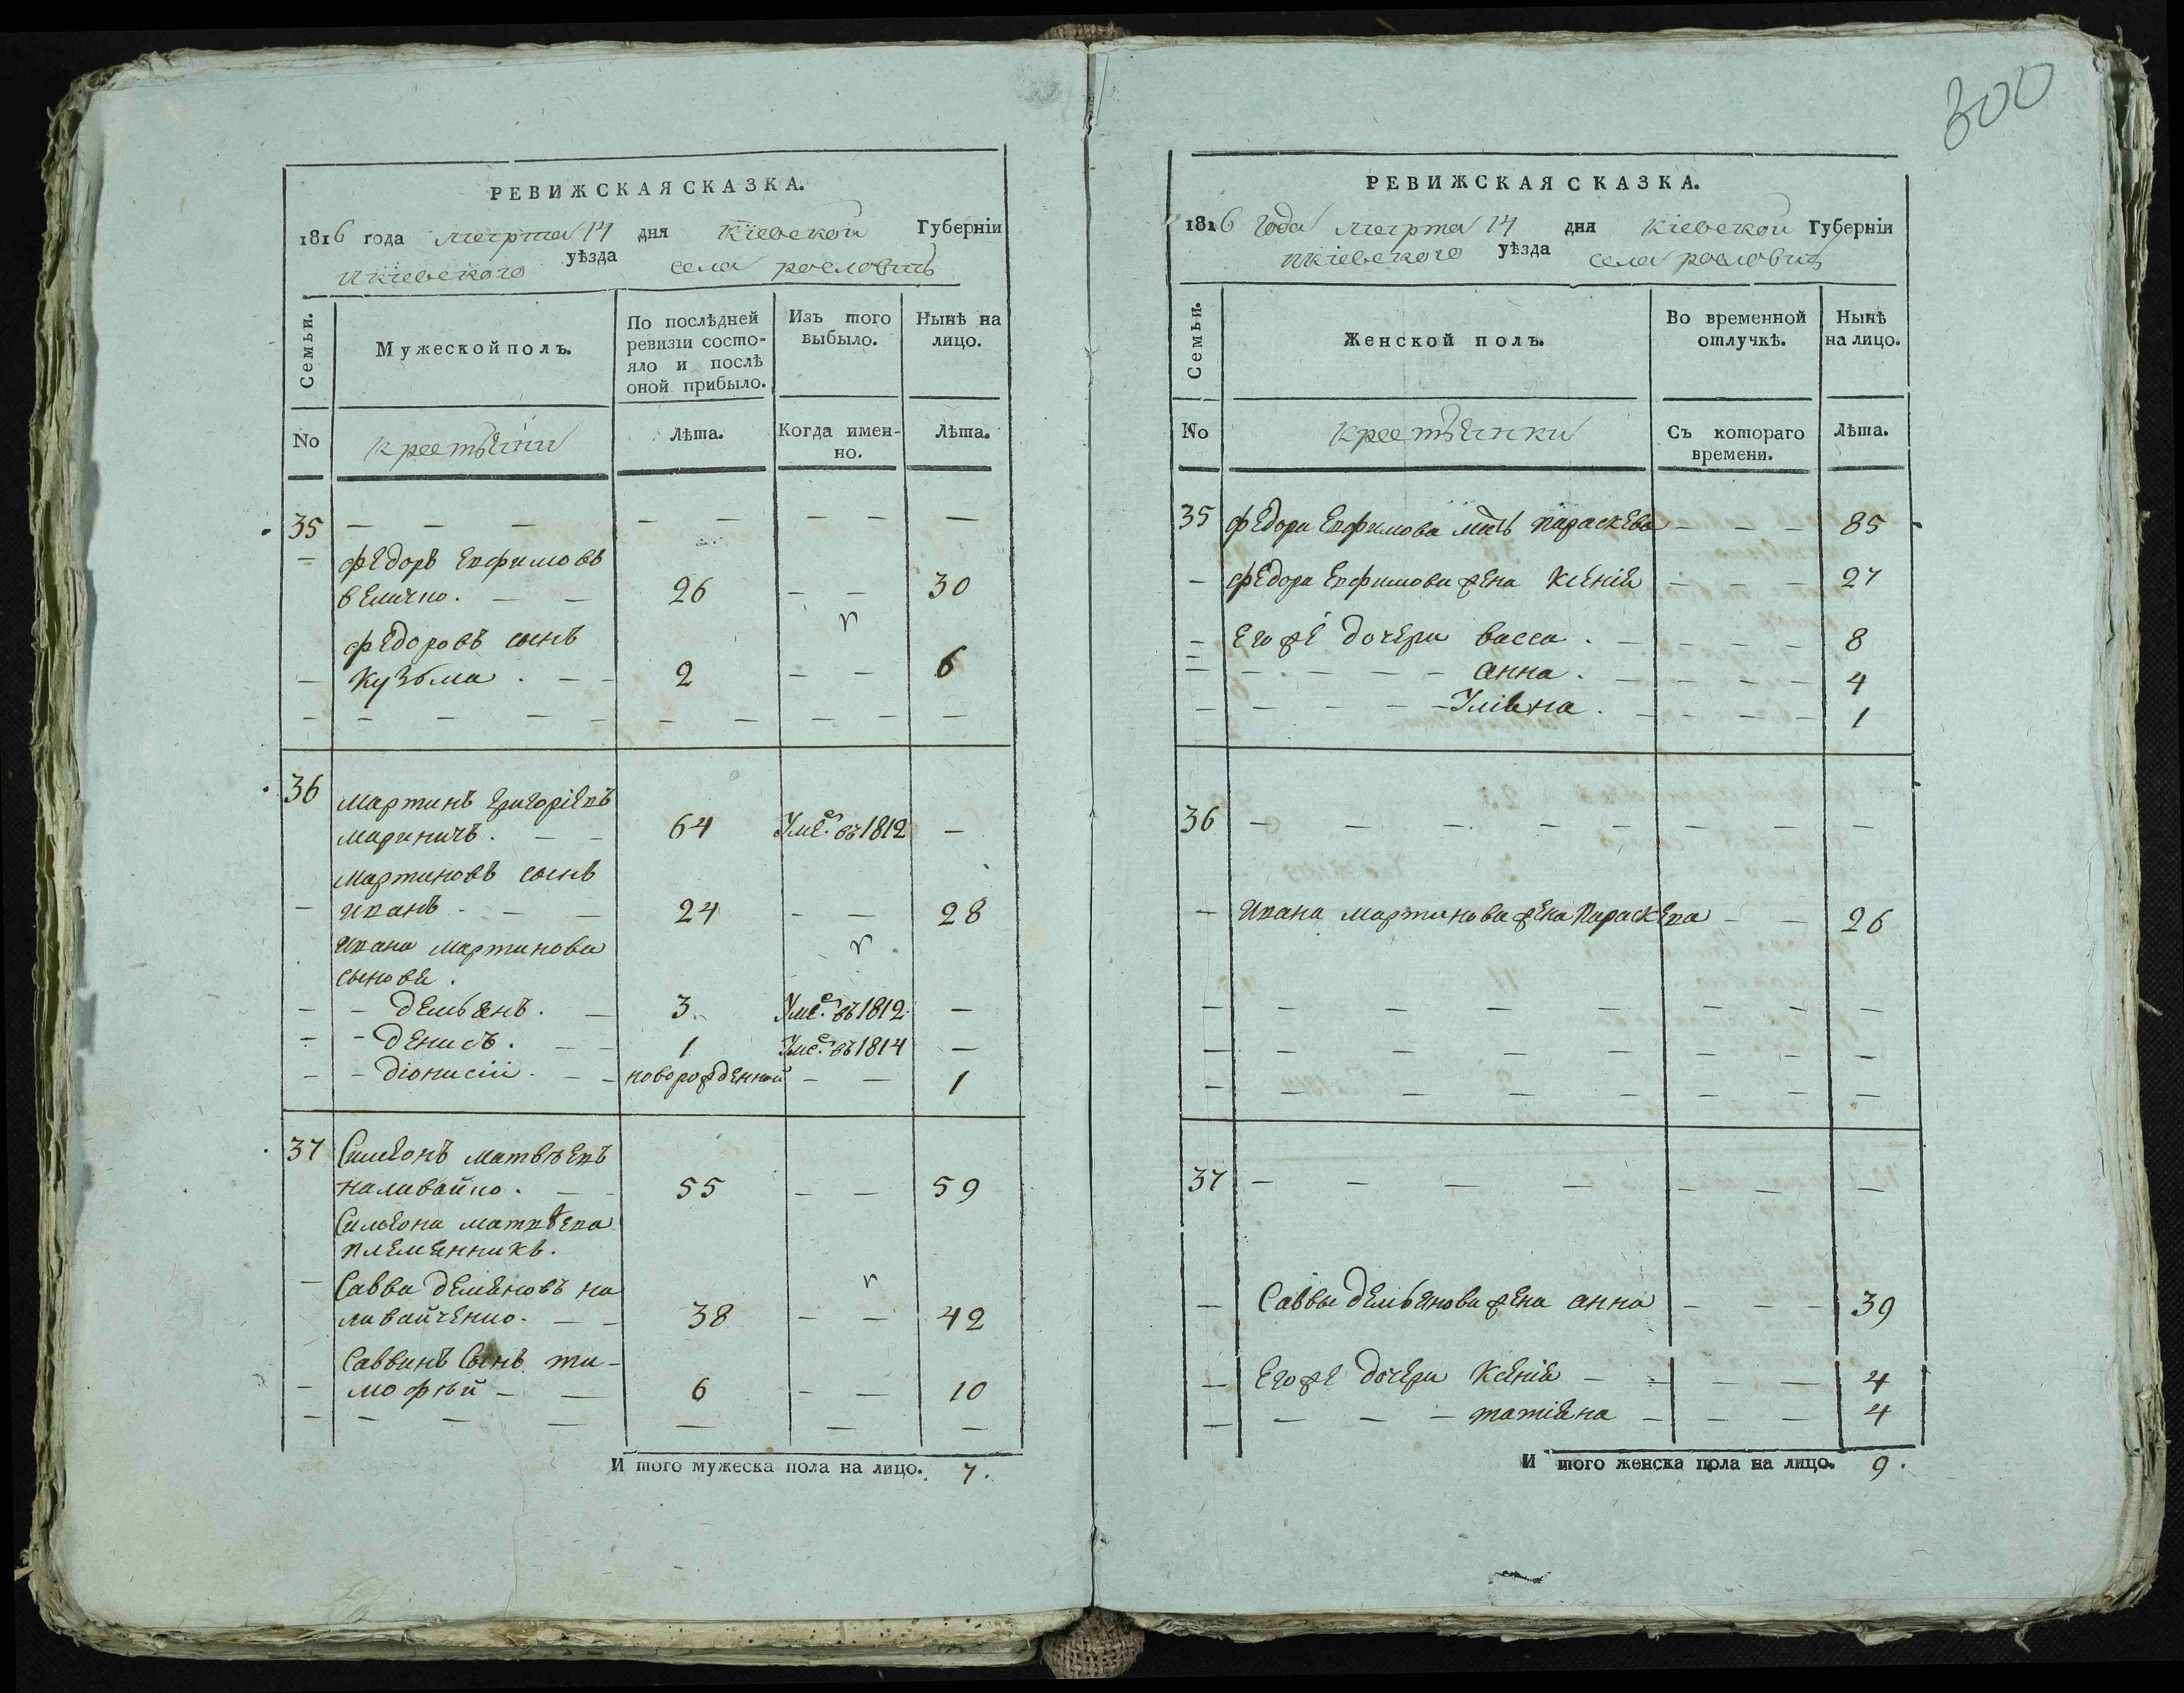 300
РЕВИЖСКАЯ СКАЗКА.
1816 года марта 14 дня Кіевской Губерніи
Икіевского уѣзда села рословичъ
Семьи.
Мужеской полъ.
По послѣдней ревизіи состояло и послѣ оной прибыло.
Изъ того выбыло.
Нынѣ на лицо.
No
крестьяни
Лѣта.
Когда именно.
Лѣта.
35 — — — — — — — —
— Федоръ Евфимовъ
Величко. — — 26 — — 30
Федоровъ сынъ
— Кузьма . — — 2 — — 6
36 Мартинъ Григоріевъ
Мариничъ. — — 64 Умѐ. въ 1812 —
Мартиновъ сынъ
— Иванъ — — 24 — — 28
Ивана Мартинова
сыновя .
— — Демьянъ. — 3 Умѐ. въ 1812 —
— — Денисъ. — — 1 Умѐ. въ 1814 —
— — Діонисій. — — новорожденной — — 1
37 Симеонъ Матвѣевъ
Наливайко. — — 55 — — 59
Симеона Матвѣева
племянникъ.
— Савва Демяновъ На
ливайченко. — — 38 — — 42
Саввинъ Сынъ Ти-
— мофѣй — — 6 — — 10
И того мужеска пола на лицо. 7.
РЕВИЖСКАЯ СКАЗКА.
1816 года марта 14 дня Кіевской Губерніи
Икіевского уѣзда села рословичъ
Семьи.
Женской полъ.
Во временной отлучкѣ.
Нынѣ на лицо.
No
крестьянки
Съ котораго времени.
Лѣта.
35 Федора Евфимова мать Параскева — — — 85
— Федора Евфимова жена Ксенія — — — 27
— Егоже дочери васса . — — — — 8
— — — — — анна . — — — — 4
— — — — — Уліяна . — — — — 1
36 — — — — — — — —
— Ивана Мартинова жена Параскева — — 26
37 — — — — — — —
— Саввы Демьянова жена анна — — — 39
— Егоже дочери Ксенія — — — — 4
— — — — татіяна — — — 4
И того женска пола на лицо. 9.